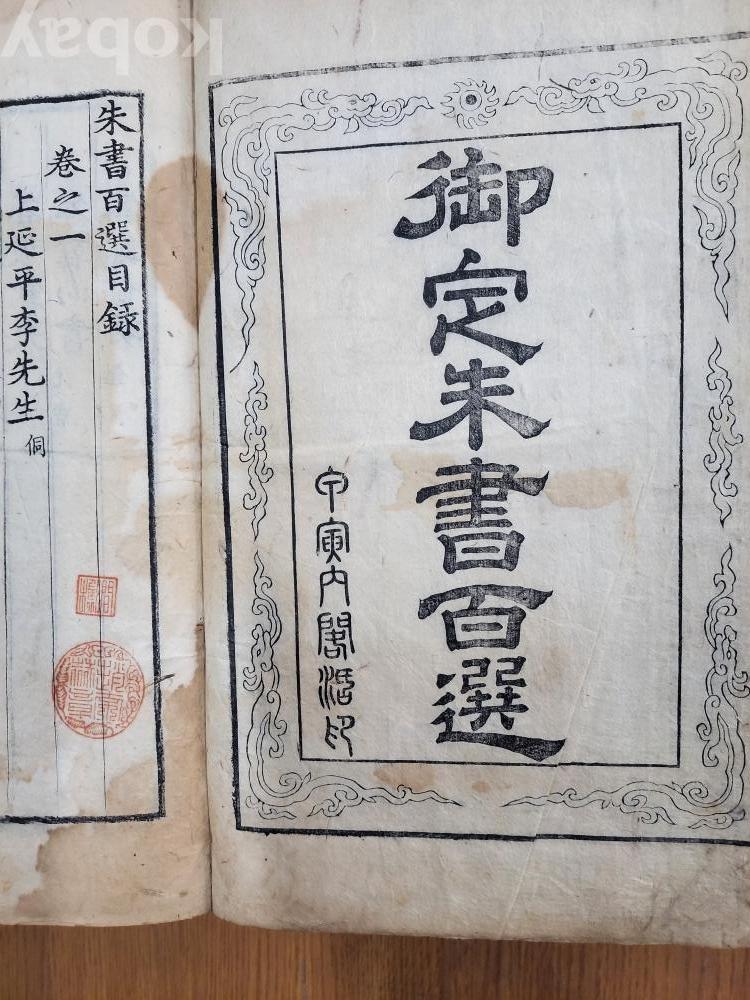 御定朱書百選
甲寅內閣活印
朱書百選目錄
卷之一
上延平李先生 侗
kobay